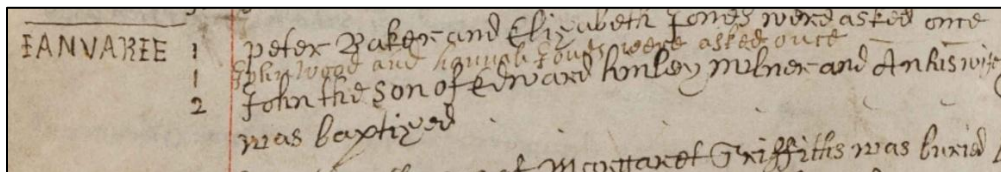 IANVAREE 1 Peter Baker and Elizabeth Jones were asked once
1 John Wood and hannah were asked once
2 John the son of Edward kinley milner and An his wife
was baptized
of Margaret Griffiths was buried